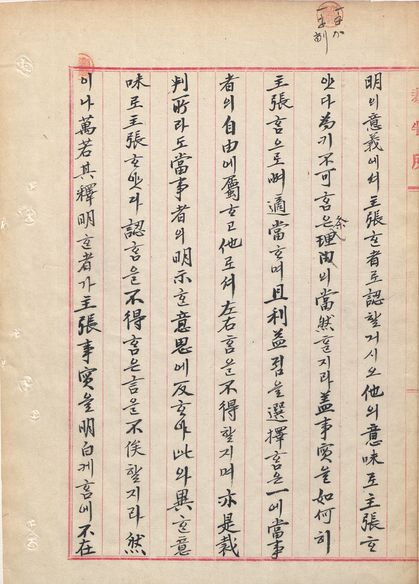 一字加
一字削
明의意義에셔主張ᄒᆞᆫ者로認할거시오他의意味로主張ᄒᆞ
얏다為기不可ᄒᆞᆷ은条理의當然ᄒᆞᆫ지라盖事實을如何히
主張ᄒᆞᆷ으로ᄡᅥ適當ᄒᆞ며且利益됨을選擇ᄒᆞᆷ은一에當事
者의自由에屬ᄒᆞ고他로셔左右ᄒᆞᆷ을不得할지며亦是裁
判所라도當事者의明示ᄒᆞᆫ意思에反ᄒᆞ야此와異ᄒᆞᆫ意
味로主張ᄒᆞ얏다認ᄒᆞᆷ을不得ᄒᆞᆷ은言을不俟할지라然
이나萬若其釋明ᄒᆞᆫ者가主張事實을明白케ᄒᆞᆷ에不在